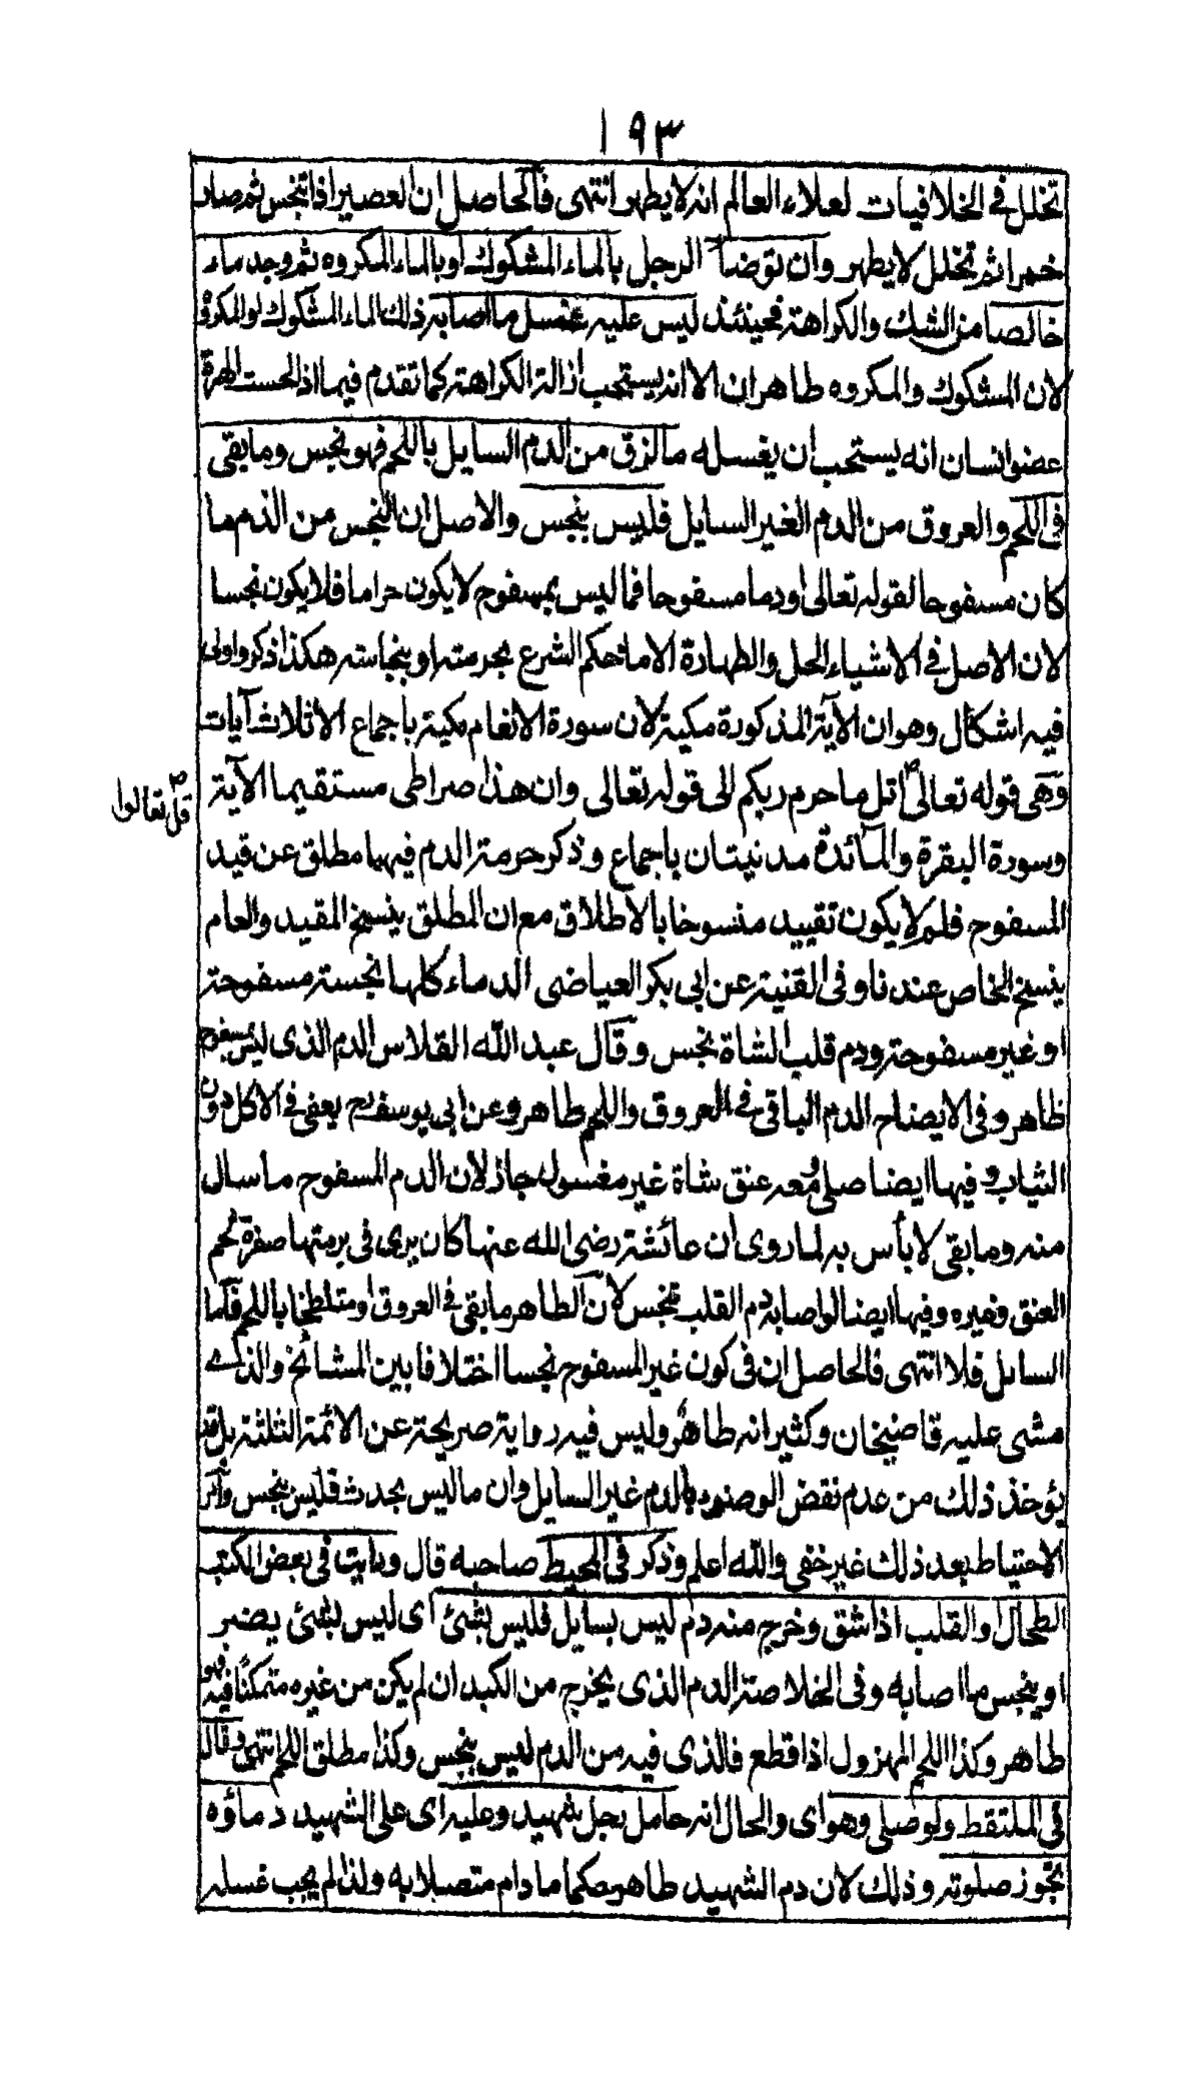 ١٩٣
تخلل في الخلافيات لعلاء العالم انه لا يطهر انتهى فالحاصل ان العصير اذا تنجس ثم صار
خمرا ثم تخلل لا يطهر وان توضأ الرجل بالماء المشكوك او بالماء المكروه ثم وجد ماء
خالصا من الشك والكراهة فحينئذ ليس عليه غسل ما اصابه ذلك الماء المشكوك او المكروه
لان المشكوك والمكروه طاهران الا انه يستحب ازالة الكراهة كما تقدم فيما اذا لحست الهرة
عضو انسان انه يستحب ان يغسله ما لزق من الدم السايل باللحم فهو نجس وما بقى
فى اللحم والعروق من الدم الغير السايل فليس بنجس والاصل ان النجس من الدم ما
كان مسفوحا لقوله تعالى او دما مسفوحا فما ليس بمسفوح لا يكون حراما فلا يكون نجسا
لان الاصل في الاشياء الحل والطهارة الا ما حكم الشرع بحرمته او بنجاسته هكذا ذكروا ولى
فيه اشكال وهو ان الآية المذكورة مكية لان سورة الانعام مكية باجماع الا ثلاث آيات
وهى قوله تعالى اتل ما حرم ربكم الى قوله تعالى وان هذا صراطى مستقيما الآية
قل تعالوا
وسورة البقرة والمائدة مدنيتان باجماع وذكر حرمة الدم فيهما مطلق عن قيد
المسفوح فلم لا يكون تقييد منسوخا بالاطلاق مع ان المطلق ينسخ المقيد والعام
ينسخ الخاص عندنا وفى القنية عن ابى بكر العياضى الدماء كلها نجسة مسفوحة
او غير مسفوحة ودم قلب الشاة نجس وقال عبد الله القلاس الدم الذى ليس بمسفوح
ظاهر وفى الايضاح الدم الباقى في العروق واللحم طاهر وعن ابى يوسف رح يعفى في الاكل دون
الثياب وفيها ايضا صلى ومعه عنق شاة غير مغسول جاز لان الدم المسفوح ما سال
منه وما بقى لا بأس به لما روى ان عائشة رضى الله عنها كان يرى فى برمتها صفرة لحم
العنق وغيره وفيها ايضا لو اصابه دم القلب تنجس لان الطاهر ما بقى في العروق او متلطخا باللحم فاما
السايل فلا انتهى فالحاصل ان فى كون غير المسفوح نجسا اختلافا بين المشائخ والذى
مشى عليه قاضيخان وكثير انه طاهر وليس فيه رواية صريحة عن الائمة الثلثة بل قد
يؤخذ ذلك من عدم نقض الوضوء بالدم غير السايل وان ما ليس بحدث فليس بنجس وامر
الاحتياط بعد ذلك غير خفى والله اعلم وذكر فى المحيط صاحبه قال ورايت فى بعض الكتب
الطحال والقلب اذا شق وخرج منه دم ليس بسايل فليس بشئ اى ليس بشئ يضر
او ينجس ما اصابه وفى الخلاصة الدم الذى يخرج من الكبد ان لم يكن من غيره متمكنا فيه فهو
طاهر وكذا اللحم المهزول اذا قطع فالذى فيه من الدم ليس بنجس وكذا مطلق اللحم انتهى وقال
فى الملتقط ولو صلى وهو اى والحال انه حامل رجل شهيد وعليه اى على الشهيد دماؤه
تجوز صلوته وذلك لان دم الشهيد طاهر حكما ما دام متصلا به ولذا لم يجب غسله